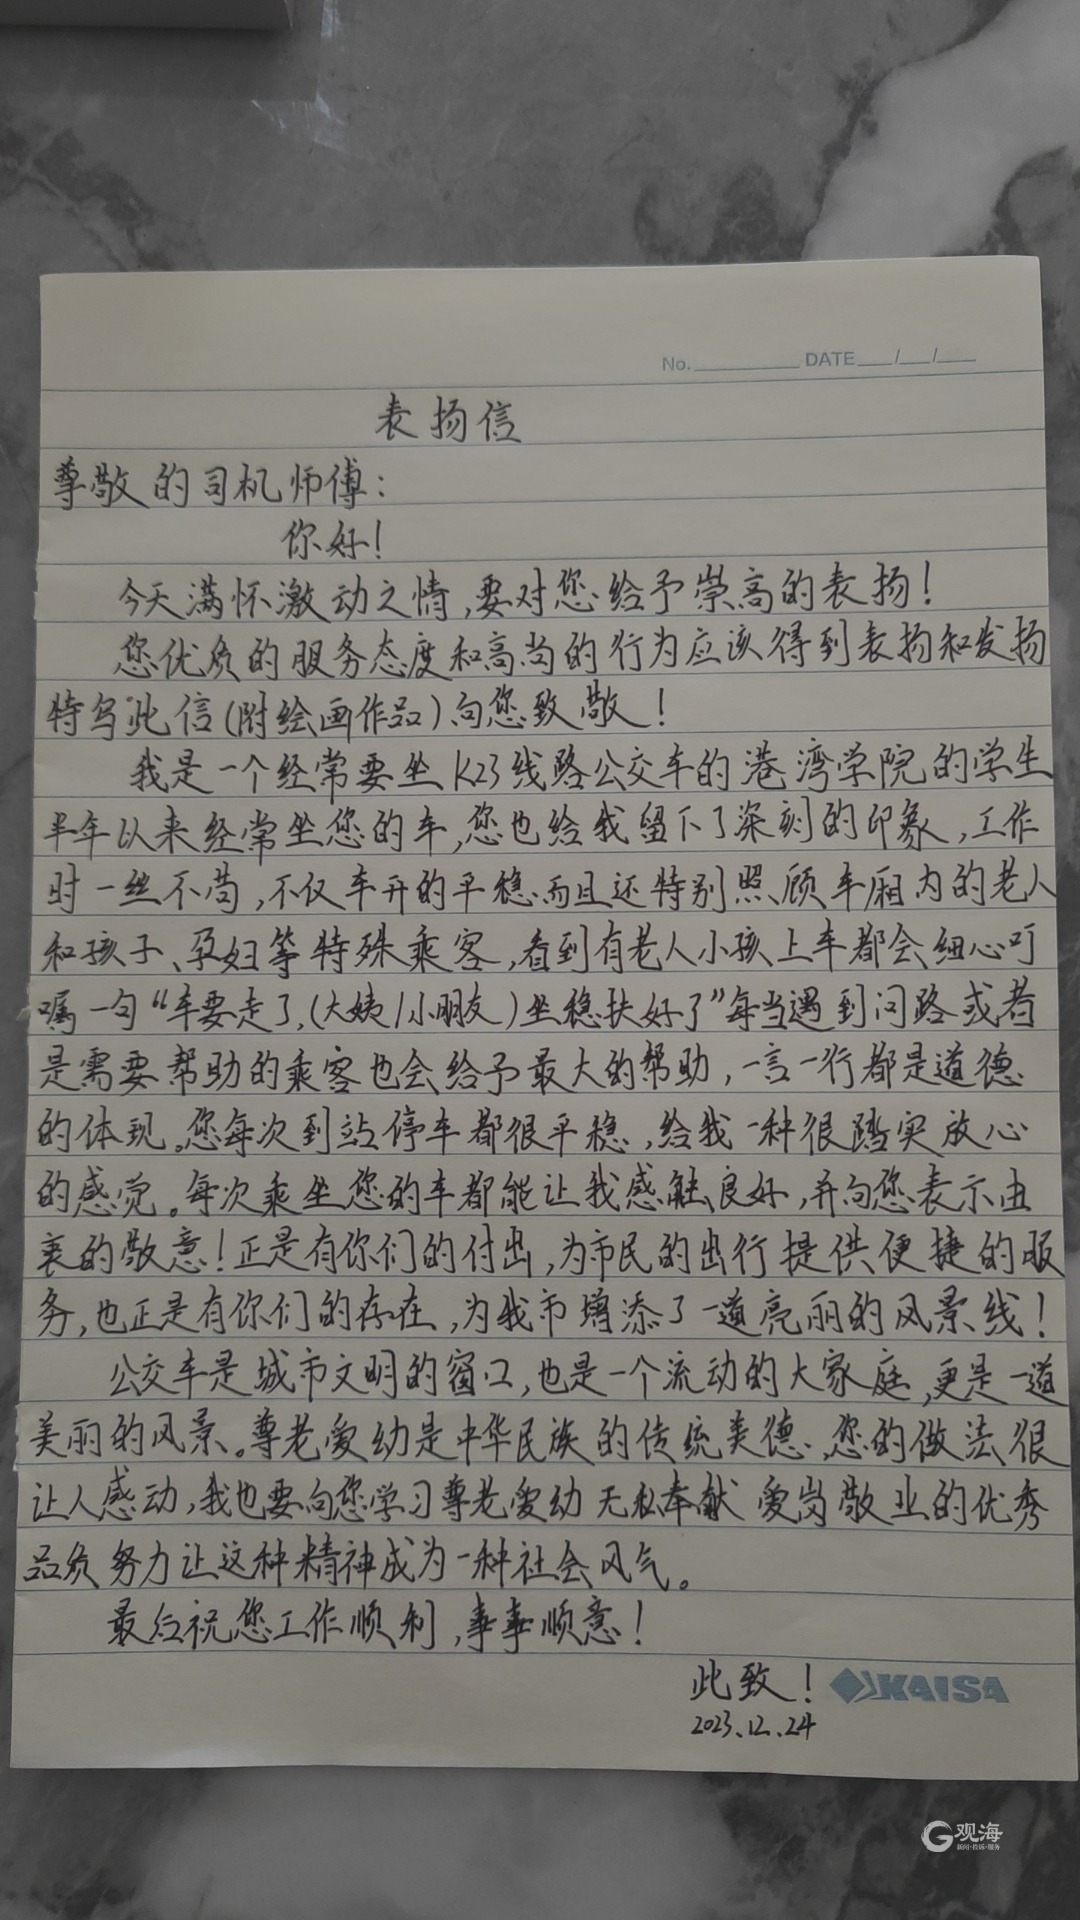 No.________ DATE___/___/___
表扬信
尊敬的司机师傅:
你好!
今天满怀激动之情,要对您给予崇高的表扬!
您优质的服务态度和高尚的行为应该得到表扬和发扬
特写此信(附绘画作品)向您致敬!
我是一个经常要坐K23线路公交车的港湾学院的学生
半年以来经常坐您的车,您也给我留下了深刻的印象,工作
时一丝不苟,不仅车开的平稳而且还特别照顾车厢内的老人
和孩子、孕妇等特殊乘客,看到有老人小孩上车都会细心叮
嘱一句“车要走了,(大姨/小朋友)坐稳扶好了”每当遇到问路或者
是需要帮助的乘客也会给予最大的帮助,一言一行都是道德
的体现。您每次到站停车都很平稳,给我一种很踏实放心
的感觉。每次乘坐您的车都能让我感触良好,并向您表示由
衷的敬意!正是有你们的付出,为市民的出行提供便捷的服
务,也正是有你们的存在,为我市增添了一道亮丽的风景线!
公交车是城市文明的窗口,也是一个流动的大家庭,更是一道
美丽的风景。尊老爱幼是中华民族的传统美德,您的做法很
让人感动,我也要向您学习尊老爱幼 无私奉献 爱岗敬业的优秀
品质努力让这种精神成为一种社会风气。
最后祝您工作顺利,事事顺意!
此致!
KAISA
2023.12.24
观海
新闻·投诉·服务